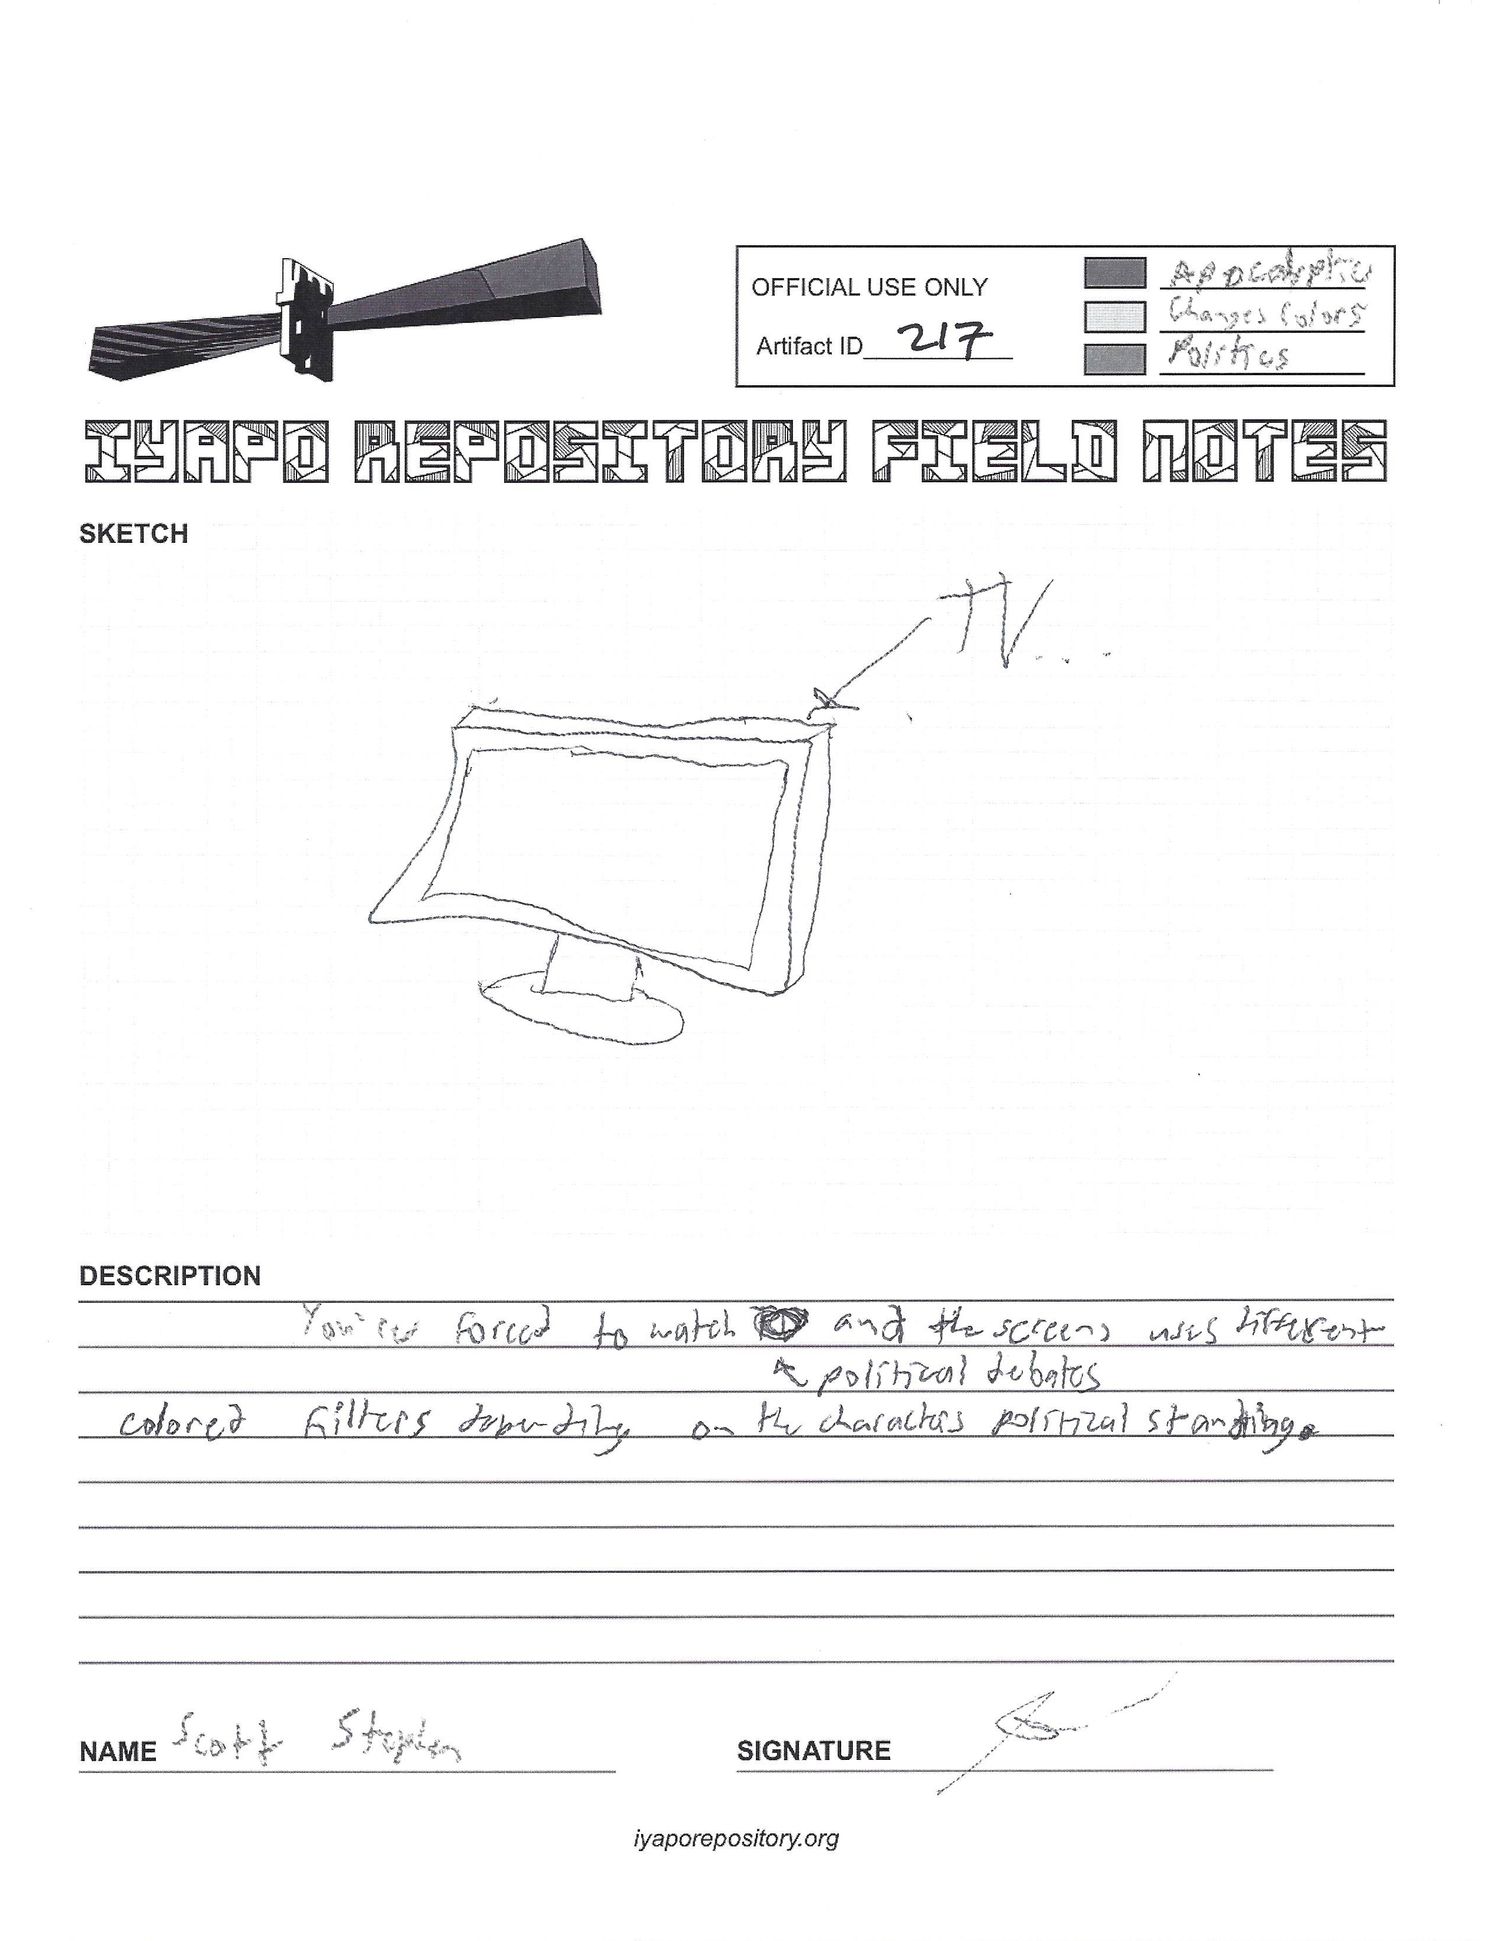 OFFICIAL USE ONLY
Artifact ID 217
Apocalyptic
Changes Colors
Politics
IYAPO REPOSITORY FIELD NOTES
SKETCH
TV...
DESCRIPTION
You're forced to watch and the screens uses different
political debates
colored filters depending on the characters political standing.
NAME Scott Stephen
SIGNATURE
iyaporepository.org